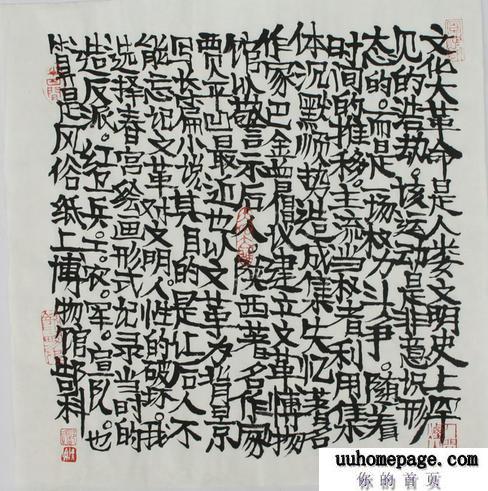 文化大革命是人类文明史上罕
见的浩劫。该运动是非意识形
态的。而是一场权力斗争。随着
时间的推移。主流当权者利用集
体沉默顺势造成集失忆。著名
作家巴金曾倡议建立文革博物
馆以警示后人。陕西著名作家
贾平凹最近也以文革为背景
写长篇小说其目的是让后人不
能忘记文革对文明。人性的破坏。我
选择春宫绘画形式记录当时的
造反派。红卫兵。工。农。军。宣队。也
是风俗纸上博物馆
uuhomepage.com
你的首页